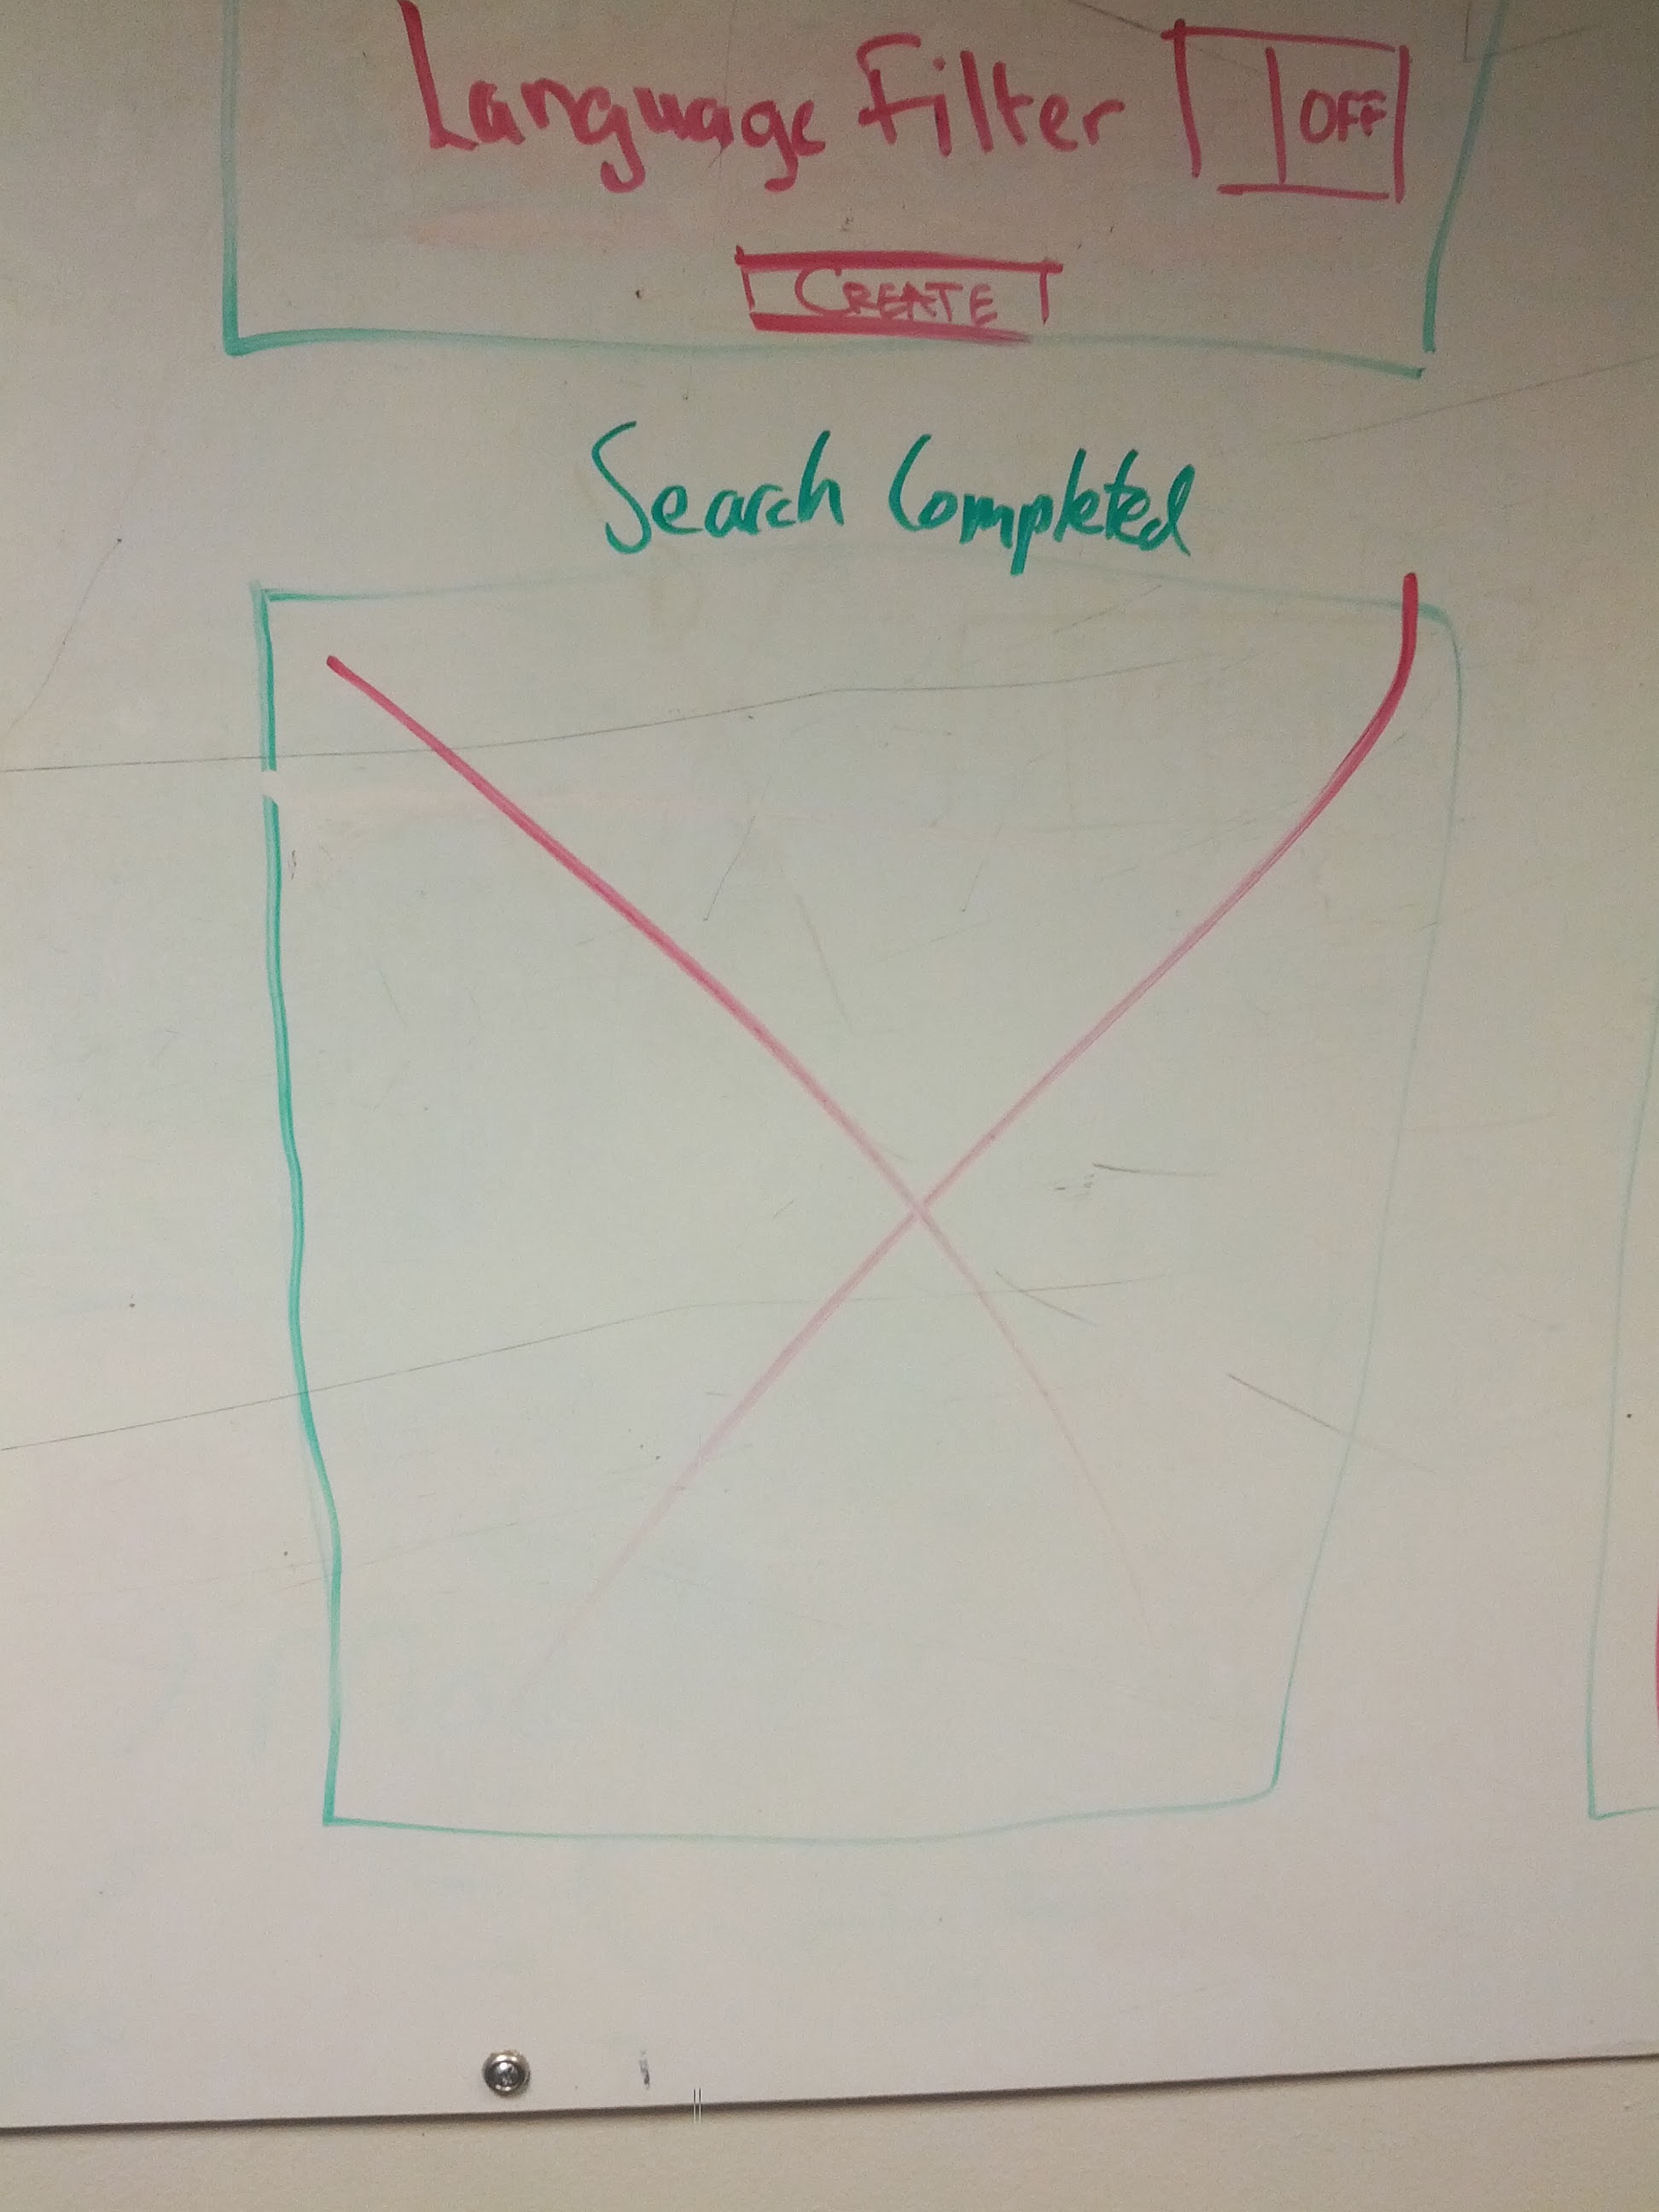 Language Filter OFF
CREATE
Search Completed